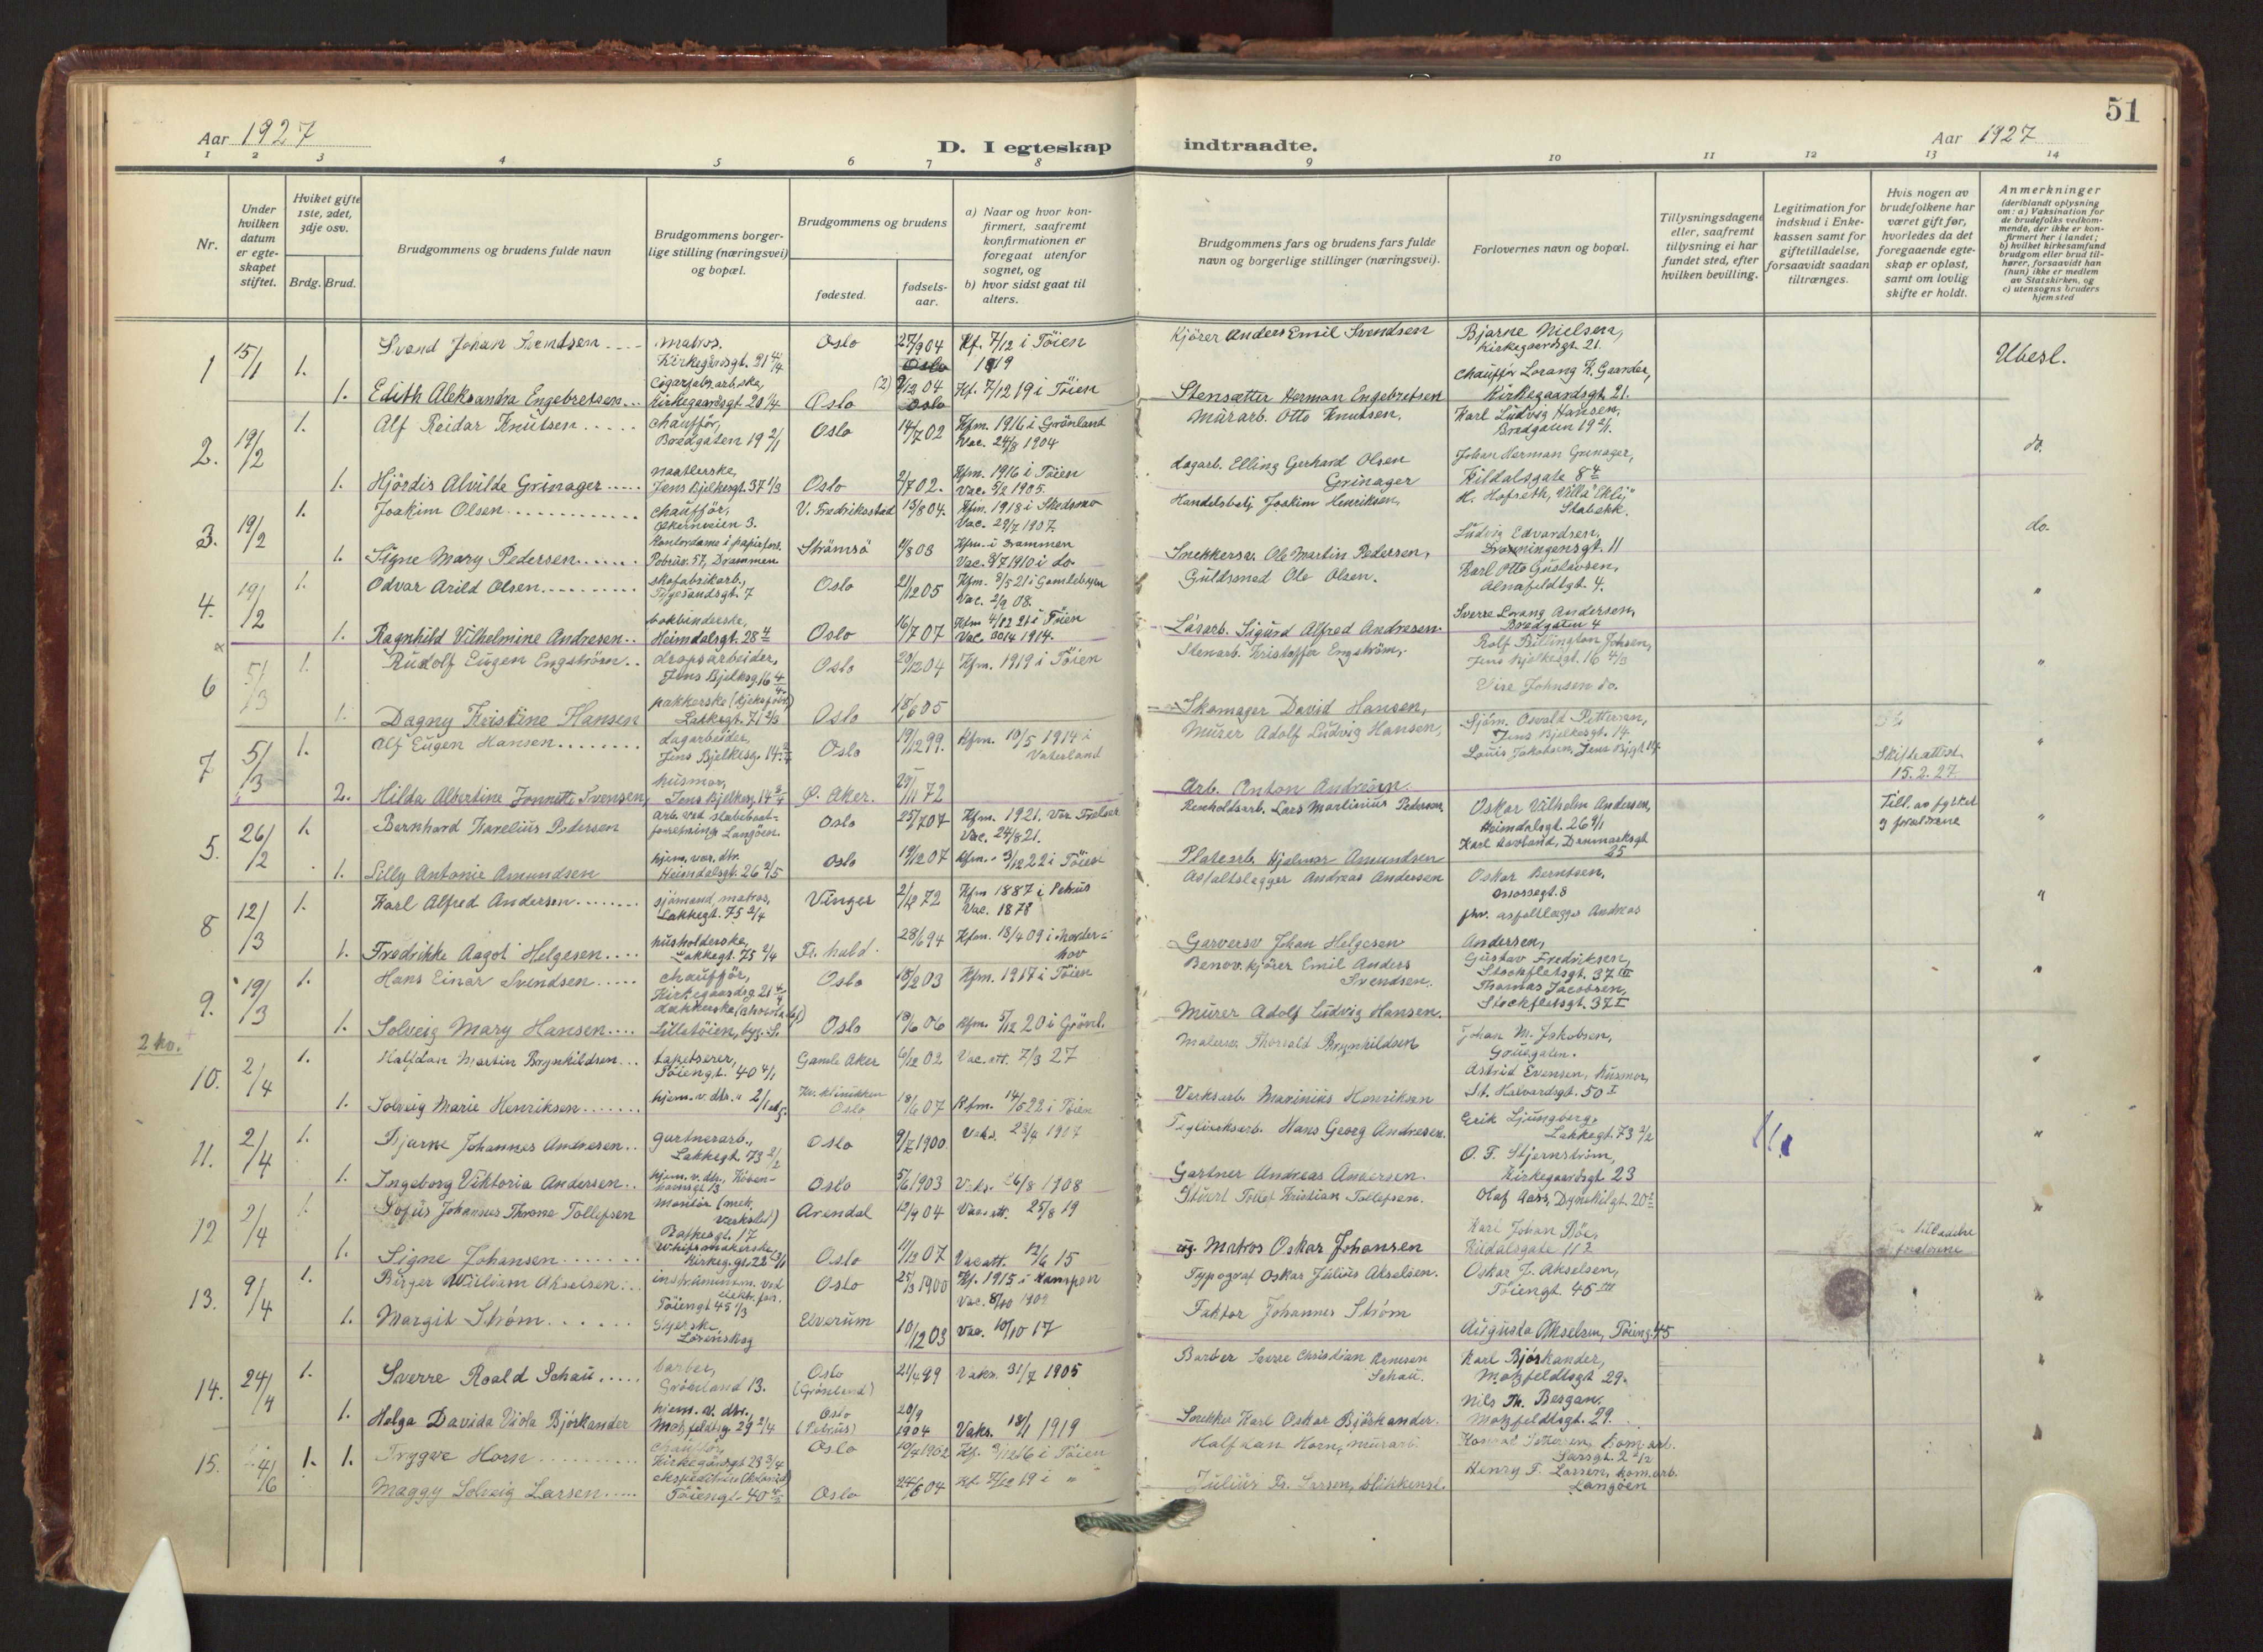 51
Aar 1927
D. I egteskap indtraadte.
Aar 1927
1 2 3 4 5 6 7 8 9 10 11 12 13 14
Nr.
Under hvilken datum er egteskapet stiftet.
Hviket gifte 1ste, 2det, 3dje osv.
Brdg. Brud.
Brudgommens og brudens fulde navn
Brudgommens borgerlige stilling (næringsvei) og bopæl.
Brudgommens og brudens
fødested.
fødselsaar.
a) Naar og hvor konfirmert, saafremt konfirmationen er foregaat utenfor sognet, og
b) hvor sidst gaat til alters.
Brudgommens fars og brudens fars fulde navn og borgerlige stillinger (næringsvei).
Forlovernes navn og bopæl.
Tillysningsdagene eller, saafremt tillysning ei har fundet sted, efter hvilken bevilling.
Legitimation for indskud i Enkekassen samt for giftetilladelse, forsaavidt saadan tiltrænges.
Hvis nogen av brudefolkene har været gift før, hvorledes da det foregaaende egteskap er opløst, samt om lovlig skifte er holdt.
Anmerkninger (deriblandt oplysning om: a) Vaksination for de brudefolks vedkommende, der ikke er konfirmert her i landet; b) hvilket kirkesamfund brudgom eller brud tilhører, forsaavidt han (hun) ikke er medlem av Statskirken, og c) utensogns bruders hjemsted
1 15/1 1. Svend Johan Svendsen matros, Kirkegårdsgt. 21 4/4 Oslo 27/9 04 Kf. 7/12 i Töien 1919 Kjörer Anders Emil Svendsen Bjarne Nielsen, Kirkegaardsgt. 21. Ubesl.
1. Edith Aleksandra Engebretsen cigarfabr.arb.ske, Kirkegaardsgt 20 1/4 Oslo 04 Kf. 7/12 19 i Töien Stensætter Herman Engebretsen Chauffør Lorang K. Gaarder, Kirkegaardsgt 21.
2. 19/2 1. Alf Reidar Knutsen chaufför, Bredgaten 19 2/1 Oslo 14/7 02 Kfm. 1916 i Grönland Vac. 24/8 1904 Murarb. Otto Knutsen. Karl Ludvig Hansen, Bredgaten 19 2/1. do.
1. Hjördis Alvilde Grinager naatlerske, Jens Bjelkesgt. 37 1/3 Oslo 2/7 02. Kfm. 1916 i Töien Vac. 5/2 1905. dagarb. Elling Gerhard Olsen Grinager Johan Herman Grinager, Hildalsgate 8 4
3. 19/2 1. Joakim Olsen chaufför, Økernveien 3. V. Fredriksstad 15/8 04. Kfm. 1918 i Skedsmo Vac. 29/7 1907. Handelsbetj. Joakim Henriksen, H. Hofseth, Villa "Eklij" Stabekk. do.
1. Signe Mary Pedersen Kontordame i papirforr. 57, Drammen Strömsö 08 Kfm. i Drammen Vac. 8/7 1910 i do. Snekkersv. Ole Martin Pedersen, Ludvig Edvardsen, Dronningensgt. 11
4. 19/2 1. Odvar Arild Olsen skofabrikarb., Tøyesandsgt. 7 Oslo 21/12 05 Kfm. 8/5 21 i Gamlebyen Vac. 2/9 08. Guldsmed Ole Olsen. Karl Otto Gustavsen, Alnafeldtgt. 4. "
1. Ragnhild Vilhelmine Andresen bokbinderske, Heimdalsgt. 28 4 Oslo 16/7 07 Kfm 4/12 21 i Töien Vac. 1914. Låsarb. Sigurd Alfred Andresen. Sverre Lorang Andersen, Bredgaten 4
6 5/3 1. Rudolf Eugen Engström dropsarbeider, Jens Bjelkesg 16 4/4 Oslo 20/12 04 Kfm. 1919 i Töien Stenarb. Kristoffer Engström, Rolf Billington Johsen, Jens Bjelkesgt. 16 4/3 "
1. Dagny Kristine Hansen pakkerske Lakkegt. 71 2/3 Oslo 18/6 05 Skomager David Hansen, Johnsen do.
7 5/3 1. Alf Eugen Hansen dagarbeider, Jens Bjelkesg. 14 Oslo 19/12 99. Kfm. 10/5 1914 i Vaterland Murer Adolf Ludvig Hansen, Sjöm. Osvald Pettersen, Jens Bjelkesgt. 14 Louis Jakobsen, Jens Bjgt 14. Skifteattest 15.2.27 "
2. Hilda Albertine Jonnette Svensen, husmor, Jens Bjelkesg. 14 Ø. Aker. 72 Arb. Anton Andresen.
5. 26/2 1. Bernhard Karelius Pedersen arb. ved slæbebaatforretning Langöen. Oslo 25/7 07 Kfm. 1921. Vor Frelser Vac. 24/8 21. Renholdsarb. Lars Martinius Pedersen Oskar Vilhelm Andersen, Heimdalsgt. 26 Till. av fylket og forældrene "
1. Lilly Antonie Amundsen hjem. vær. dtr. Heimdalsgt. 26 2/5 Oslo 19/12 07 Kfm. 3/12 22 i Töien Platearb. Hjalmar Amundsen Karl Danmarksgt 25
8 12/3 1. Karl Alfred Andersen sjömand, matros, Lakkegt. 75 2/4 Vinger 72 Kfm 1887 i Petrus Vac. 1878 Asfaltslægger Andreas Andersen Oskar Berntsen, Mossegt. 8 "
1. Fredrikke Aagot Helgesen husholderske, Lakkegt. 75 2/4 Fr. hald. 28/6 94 Kfm. 18/4 09 i Norderhov Garversv. Johan Helgesen fhv. asfaltlægger Andreas Andersen,
9. 19/3 1. Hans Einar Svendsen chaufför, Kirkegaardsg 21 4/4 Oslo 18/2 03 Kfm. 1917 i Töien Renov. kjörer Emil Anders Svendsen. Gustav Fredriksen, Stockfletsgt. 37 III "
1. Solveig Mary Hansen Lilletöien, byg. Oslo 06 Kfm. 5/12 20 i Grönl. Murer Adolf Ludvig Hansen. Thomas Jacobsen, Stockfletsgt. 37 I
2 ko.
10. 2/4 1. Halfdan Martin Brynhildsen tapetserer, Töiengt. 40 4/1 Gamle Aker 6/12 02 Vac. att. 7/3 27 Malersv. Thorvald Brynhildsen Johan M. Jakobsen, Gruegaten. "
1. Solveig Marie Henriksen hjem. v. dtr. Kv. klinikken Oslo 18/6 07 Kfm. 14/5 22 i Töien Verksarb. Marinius Henriksen Astrid Evensen, husmor, St. Halvardsgt. 50 I
11. 2/4 1. Bjarne Johannes Andresen gartnerarb., Lakkegt. 73 2/2 Oslo 1900 Vaks. 23/4 1907 Teglverksarb. Hans Georg Andresen. Erik Ljungberg, Lakkegt. 73 2/2 "
1. Ingeborg Viktoria Andersen hjem. v. dtr., Kövenhavnsgt 13 Oslo 5/6 1903 Vaks. 6/8 1908 Gartner Andreas Andersen. O. F. Stjernström, Kirkegaardsgt 23
12 2/4 1. Sofus Johannes Throne Tollefsen montör (mek. verksted) Rathkesgt. 17 Arendal 12/9 04 Vac. att. 25/8 19 Stuert Tollef Kristian Tollefsen. Olaf Aars, Dynekilgt. 20 "
1. Signe Johansen Kirkeg. gt. 22 Oslo 11/12 07 Vac att. 12/6 15 Matros Oskar Johansen Karl Johan Böe, Hildalsgate 11 2 tilladelse forældrene
13. 9/4 1. Birger William Akselsen instrumentm. ved elektr. for. Töiengt 45 1/3 Oslo 25/3 1900 Kf. 1915 i Kampen Vac. 8/10 1909 Typograf Oskar Julius Akselsen. Oskar J. Akselsen, Töiengt. 45 III "
1. Margit Ström Syerske, Lörenskog Elverum 10/12 03 Vac. 10/10 17 Faktor Johannes Ström Augusta Akselsen, Töieng. 45
14. 24/4 1. Sverre Roald Schau barber, Grönland 13. Oslo (Grönland) 21/4 99 Vaks. 31/7 1905 Barber Sverre Christian Arnesen Schau. Karl Björkander, Motzfeldtsgt 29. "
1. Helga Davida Viola Björkander hjem. v. dtr. Motzfeldtsg 29 2/4 Oslo (Petrus) 20/9 1904 Vaks. 18/1 1919 Snekker Karl Oskar Björkander. Nils Th. Bergan, Motzfeldtsgt. 29.
15. 4/6 1. 1. Trygve Horn chauffør, Kirkegårdsgt 23 3/4 Oslo 1902 Kf. 3/12 16 i Töien Halfdan Horn, murarb. Konrad Pettersen, kom.arb. Larsgt. 2 2/2 "
Maggy Solveig Larsen ekspeditrise (kolonial) Töiengt. 40 Oslo 24/6 04 Kf 7/12 19 i " Julius Fr. Larsen, blikkensl. Henry F. Larsen, kom.arb. Langöen